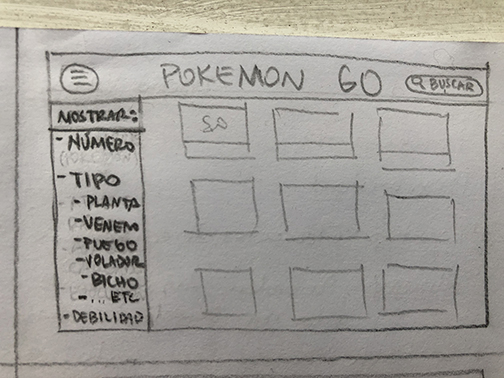 POKEMON GO
BUSCAR
MOSTRAR:
- NÚMERO
- TIPO
- PLANTA
- VENENO
- FUEGO
- VOLADOR
- BICHO
- ... ETC
- DEBILIDAD